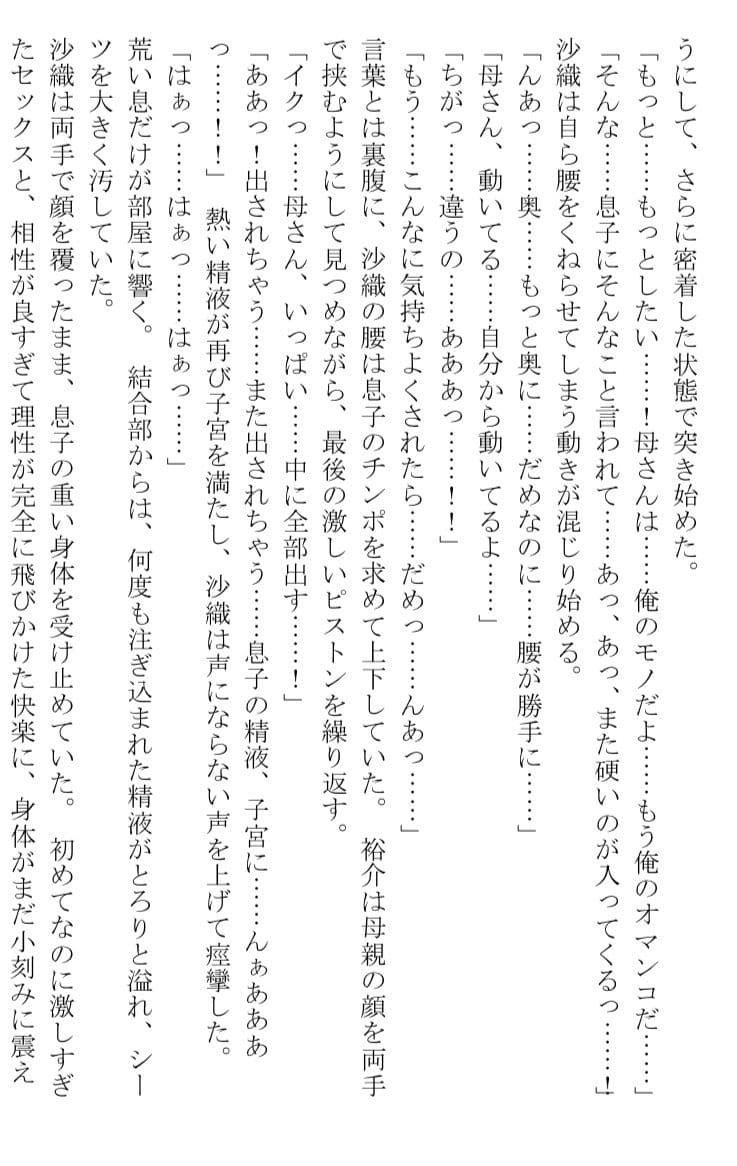 うにして、さらに密着した状態で突き始めた。
「もっと……もっとしたい……！母さんは……俺のモノだよ……もう俺のオマンコだ……」
「そんな……息子にそんなこと言われて……あっ、あっ、また硬いのが入ってくるっ……！」
沙織は自ら腰をくねらせてしまう動きが混じり始める。
「んあっ……奥……もっと奥に……だめなのに……腰が勝手に……」
「母さん、動いてる……自分から動いてるよ……」
「ちがっ……違うの……あああっ……！！」
「もう……こんなに気持ちよくされたら……だめっ……んあっ……」
言葉とは裏腹に、沙織の腰は息子のチンポを求めて上下していた。　裕介は母親の顔を両手
で挟むようにして見つめながら、最後の激しいピストンを繰り返す。
「イクっ……母さん、いっぱい……中に全部出す……！」
「ああっ！出されちゃう……また出されちゃう……息子の精液、子宮に……んぁあああ
っ……！！」　熱い精液が再び子宮を満たし、沙織は声にならない声を上げて痙攣した。
「はぁっ……はぁっ……はぁっ……」
荒い息だけが部屋に響く。　結合部からは、何度も注ぎ込まれた精液がとろりと溢れ、シー
ツを大きく汚していた。
沙織は両手で顔を覆ったまま、息子の重い身体を受け止めていた。　初めてなのに激しすぎ
たセックスと、相性が良すぎて理性が完全に飛びかけた快楽に、身体がまだ小刻みに震え